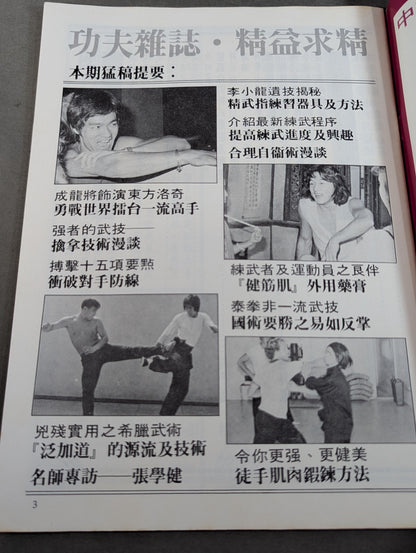 功夫雜誌·精益求精
本期猛稿提要：
成龍將飾演東方洛奇
勇戰世界擂台一流高手
强者的武技——
擒拿技術漫談
搏擊十五項要點
衝破對手防線
兇殘實用之希臘武術
『泛加道』的源流及技術
名師專訪——張學健
李小龍遺技揭秘
精武指練習器具及方法
介紹最新練武程序
提高練武進度及興趣
合理自衞術漫談
練武者及運動員之良伴
『健筋肌』外用藥膏
泰拳非一流武技
國術要勝之易如反掌
令你更强、更健美
徒手肌肉鍛鍊方法
3
中